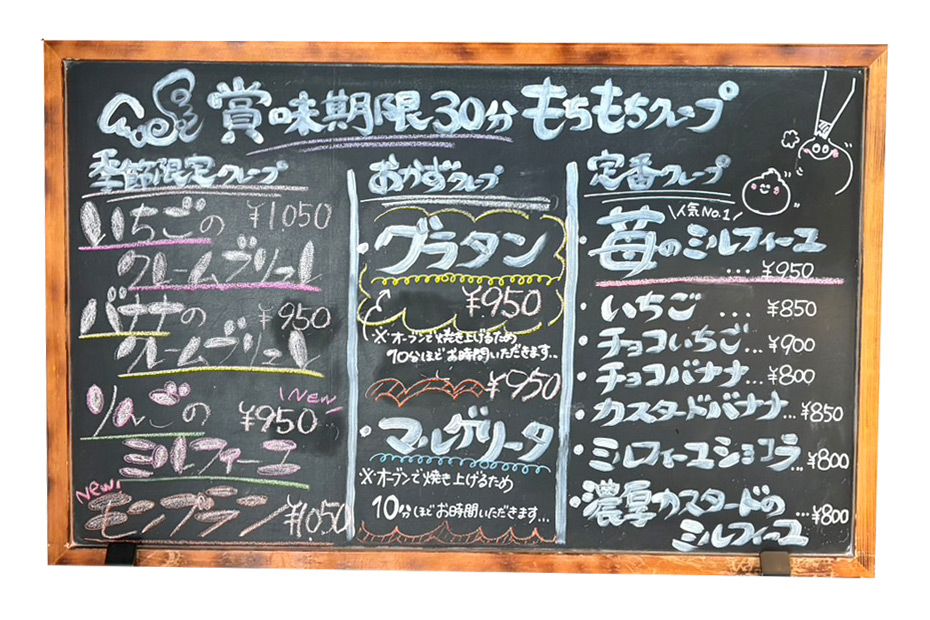 賞味期限30分 もちもちクレープ
季節限定クレープ
いちごの ¥1,050
クレームブリュレ
バナナの ¥950
クレームブリュレ
New
りんごの ¥950
ミルフィーユ
New
モンブラン ¥1,050
おかずクレープ
・グラタン
¥950
※オーブンで焼き上げるため
10分ほどお時間いただきます...
¥950
・マルゲリータ
※オーブンで焼き上げるため
10分ほどお時間いただきます...
定番クレープ
\人気No.1/
・苺のミルフィーユ
... ¥950
・いちご ... ¥850
・チョコいちご... ¥900
・チョコバナナ... ¥800
・カスタードバナナ... ¥850
・ミルフィーユショコラ... ¥800
・濃厚カスタードの ...¥800
ミルフィーユ